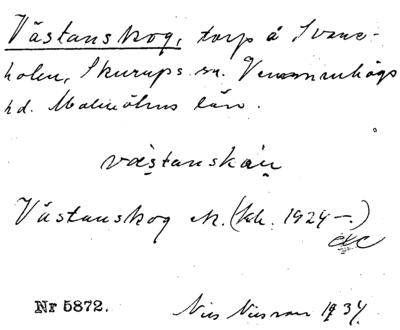 Västanskog, torp å Svane-
holm, Skurups sn. Vemmenhögs
hd. Malmöhus län.
västanskåu
Västanskog ek. (kb. 1924 –.)
Nr 5872. Nils Nilsson 1934.